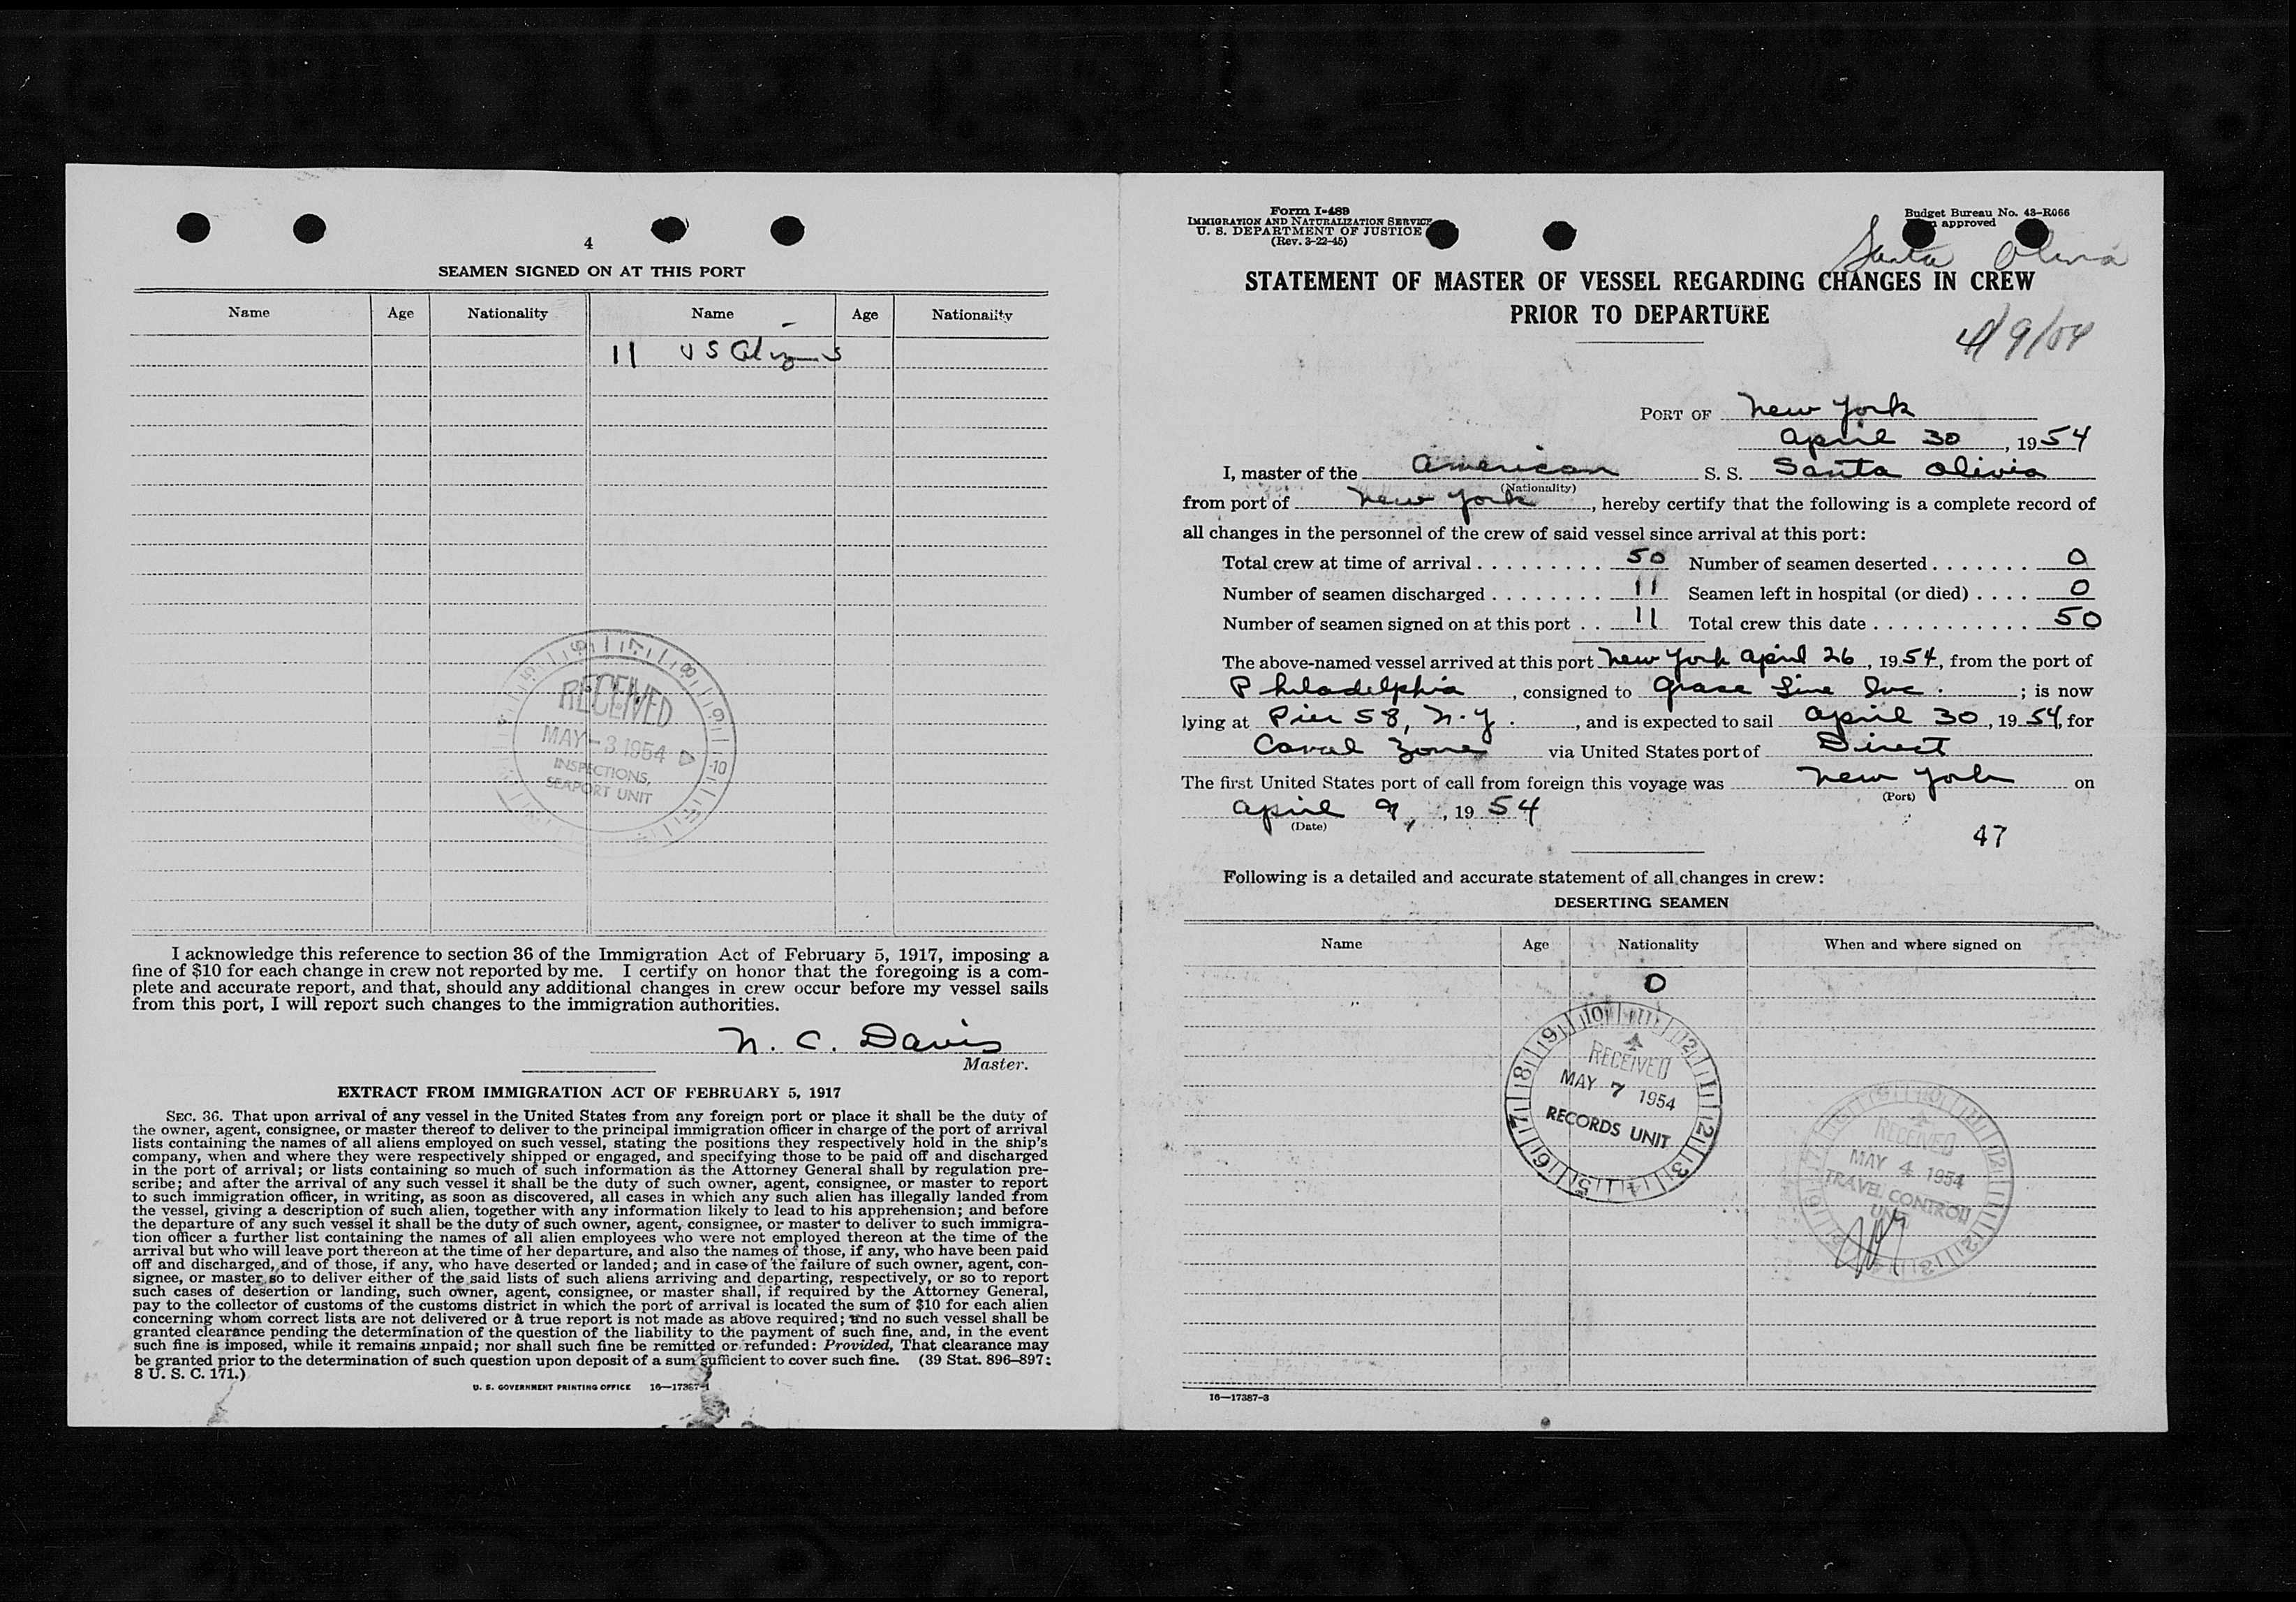 4
SEAMEN SIGNED ON AT THIS PORT
Name Age Nationality Name Age Nationality
11 US Citizens
RECEIVED
MAY - 3 1954
INSPECTIONS,
SEAPORT UNIT
I acknowledge this reference to section 36 of the Immigration Act of February 5, 1917, imposing a
fine of $10 for each change in crew not reported by me. I certify on honor that the foregoing is a com-
plete and accurate report, and that, should any additional changes in crew occur before my vessel sails
from this port, I will report such changes to the immigration authorities.
N. C. Davis
Master.
EXTRACT FROM IMMIGRATION ACT OF FEBRUARY 5, 1917
SEC. 36. That upon arrival of any vessel in the United States from any foreign port or place it shall be the duty of
the owner, agent, consignee, or master thereof to deliver to the principal immigration officer in charge of the port of arrival
lists containing the names of all aliens employed on such vessel, stating the positions they respectively hold in the ship's
company, when and where they were respectively shipped or engaged, and specifying those to be paid off and discharged
in the port of arrival; or lists containing so much of such information as the Attorney General shall by regulation pre-
scribe; and after the arrival of any such vessel it shall be the duty of such owner, agent, consignee, or master to report
to such immigration officer, in writing, as soon as discovered, all cases in which any such alien has illegally landed from
the vessel, giving a description of such alien, together with any information likely to lead to his apprehension; and before
the departure of any such vessel it shall be the duty of such owner, agent, consignee, or master to deliver to such immigra-
tion officer a further list containing the names of all alien employees who were not employed thereon at the time of the
arrival but who will leave port thereon at the time of her departure, and also the names of those, if any, who have been paid
off and discharged, and of those, if any, who have deserted or landed; and in case of the failure of such owner, agent, con-
signee, or master so to deliver either of the said lists of such aliens arriving and departing, respectively, or so to report
such cases of desertion or landing, such owner, agent, consignee, or master shall, if required by the Attorney General,
pay to the collector of customs of the customs district in which the port of arrival is located the sum of $10 for each alien
concerning whom correct lists are not delivered or a true report is not made as above required; and no such vessel shall be
granted clearance pending the determination of the question of the liability to the payment of such fine, and, in the event
such fine is imposed, while it remains unpaid; nor shall such fine be remitted or refunded: Provided, That clearance may
be granted prior to the determination of such question upon deposit of a sum sufficient to cover such fine. (39 Stat. 896–897;
8 U. S. C. 171.)
U. S. GOVERNMENT PRINTING OFFICE 16—17387-1
Form I-489
IMMIGRATION AND NATURALIZATION SERVICE
U. S. DEPARTMENT OF JUSTICE
(Rev. 3-22-45)
Budget Bureau No. 43-R066
approved
Santa Olivia
STATEMENT OF MASTER OF VESSEL REGARDING CHANGES IN CREW
PRIOR TO DEPARTURE
4/9/54
PORT OF New York
April 30, 1954
I, master of the American S. S. Santa Olivia
(Nationality)
from port of New York, hereby certify that the following is a complete record of
all changes in the personnel of the crew of said vessel since arrival at this port:
Total crew at time of arrival . . . . . . . . . 50 Number of seamen deserted . . . . . . . 0
Number of seamen discharged . . . . . . . . 11 Seamen left in hospital (or died) . . . . 0
Number of seamen signed on at this port . . 11 Total crew this date . . . . . . . . . . . . 50
The above-named vessel arrived at this port New York April 26, 1954, from the port of
Philadelphia, consigned to Grace Line Inc.; is now
lying at Pier 58, N.Y., and is expected to sail April 30, 1954, for
Canal Zone via United States port of Direct
The first United States port of call from foreign this voyage was New York on
(Port)
April 9, 1954
(Date)
47
Following is a detailed and accurate statement of all changes in crew:
DESERTING SEAMEN
Name Age Nationality When and where signed on
0
RECEIVED
MAY 7 1954
RECORDS UNIT
RECEIVED
MAY 4 1954
TRAVEL CONTROL
UNIT
16—17387-3